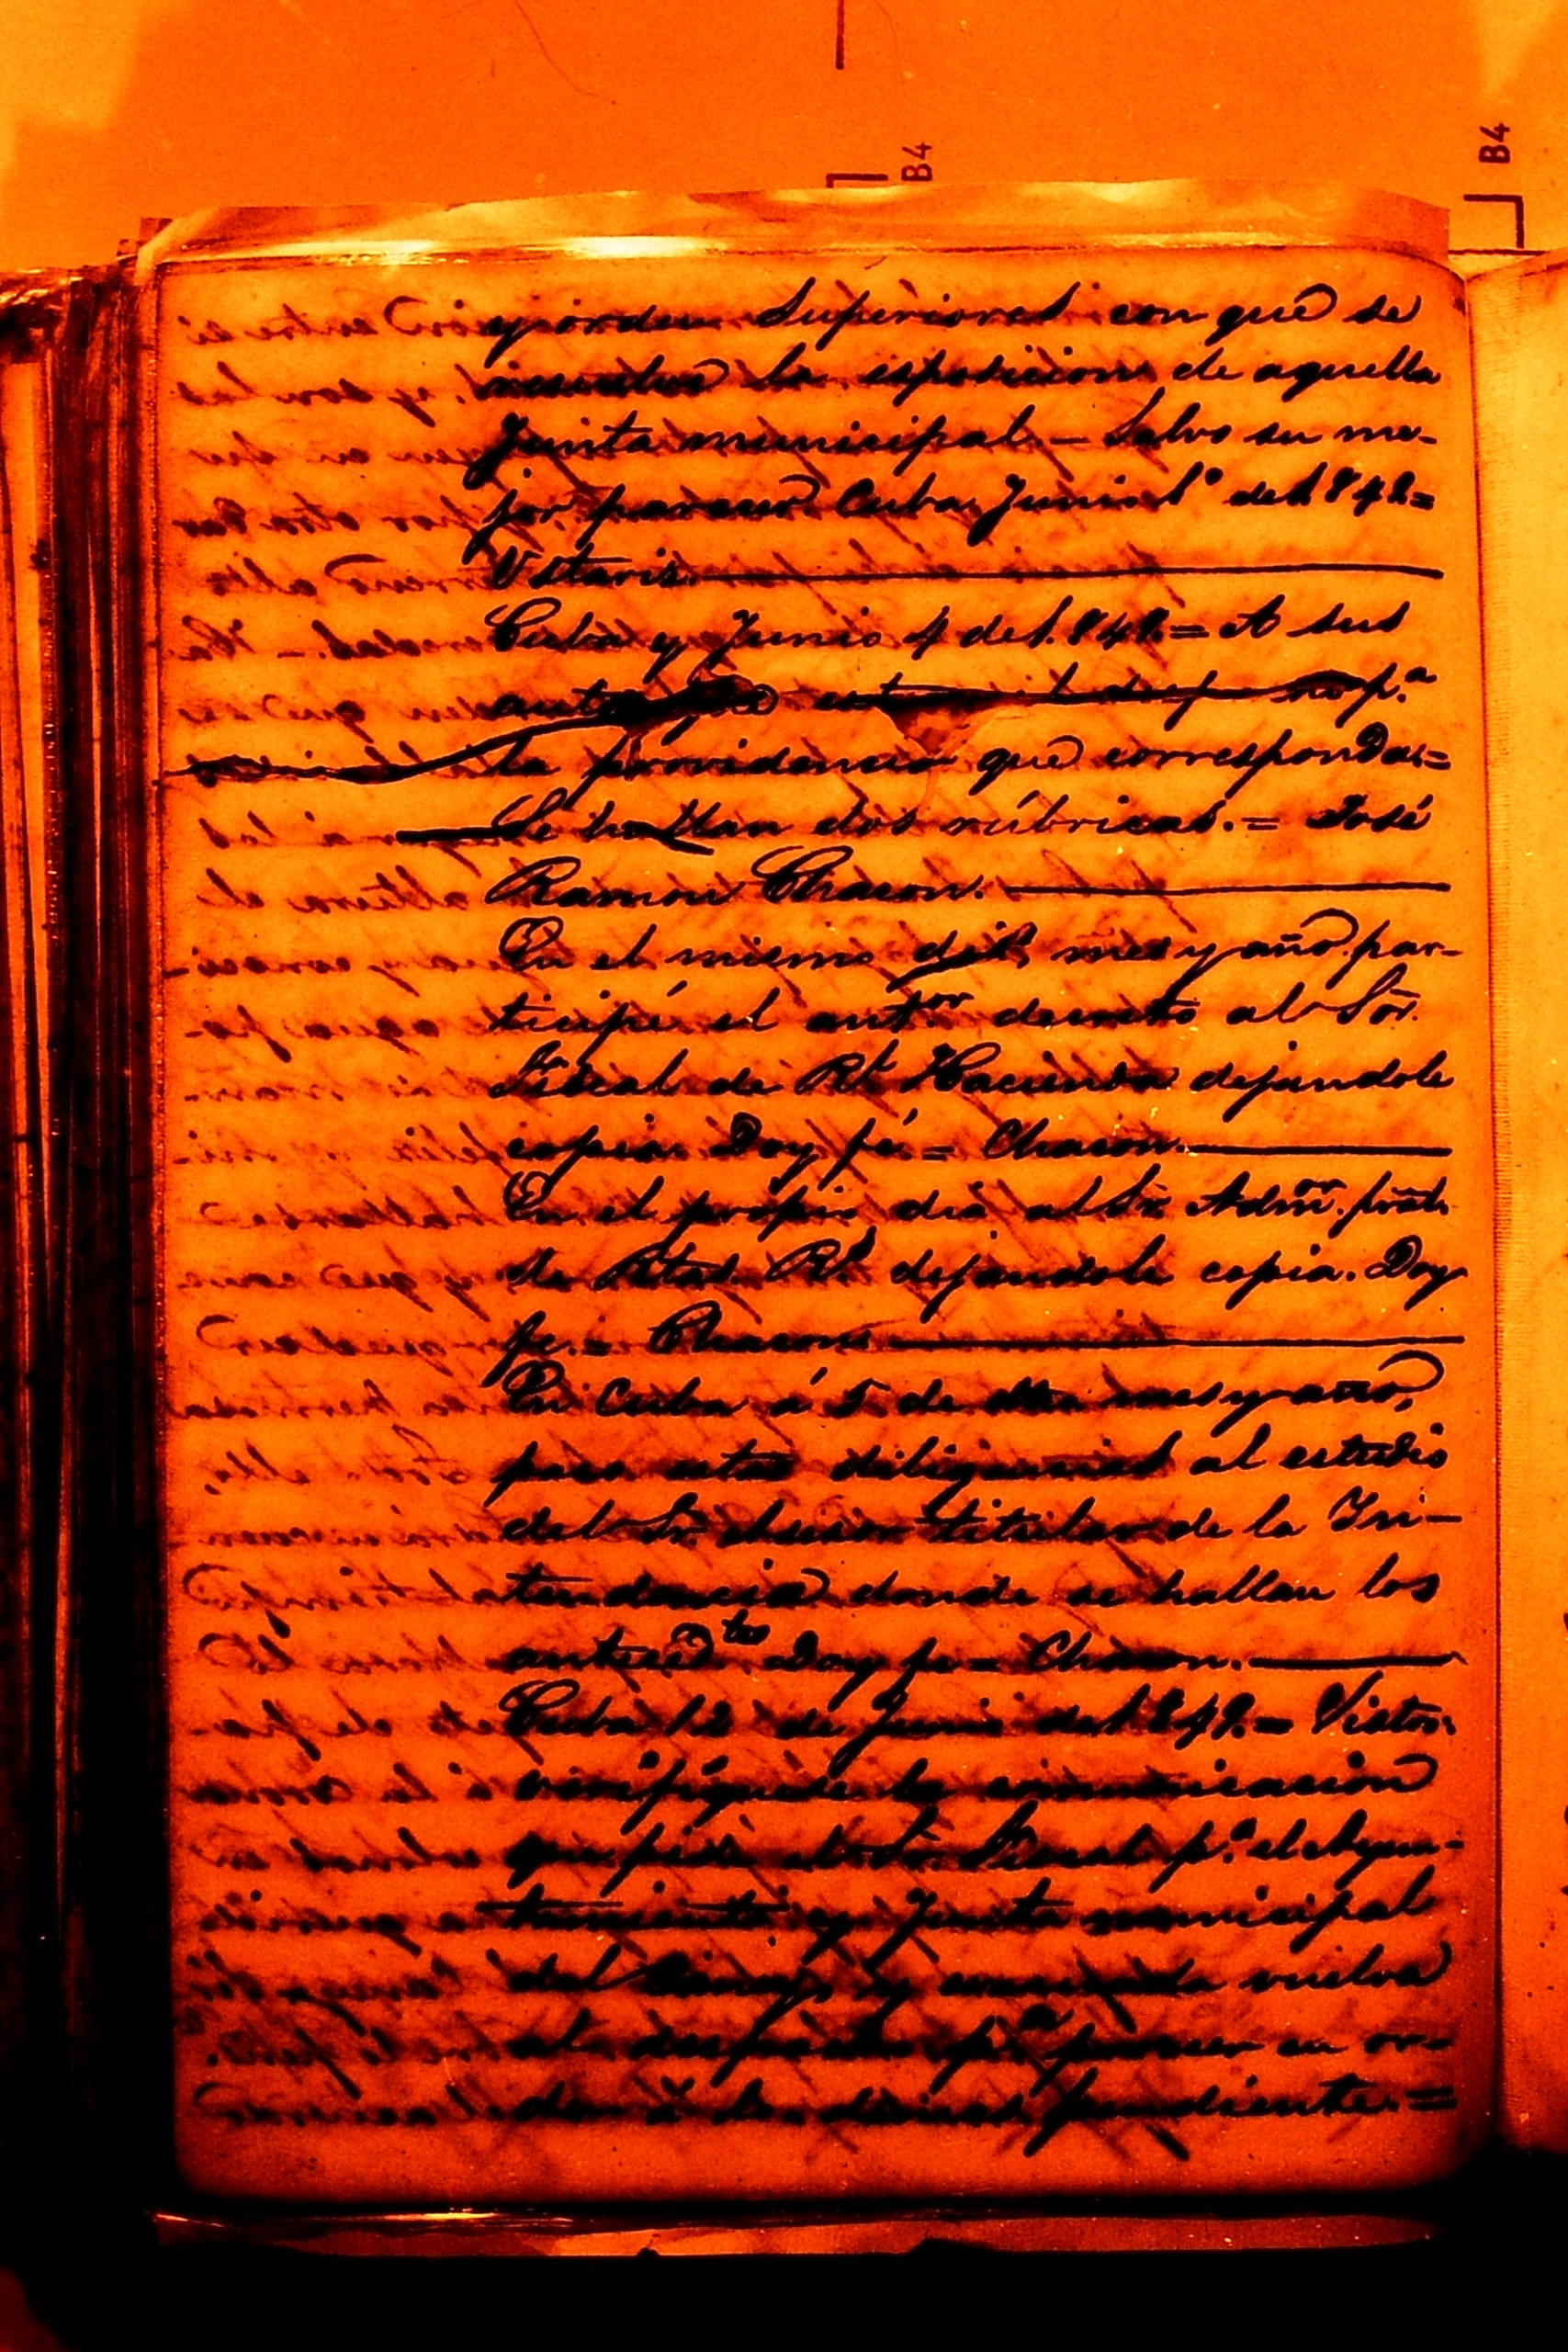 B4
B4
y orden Superiores con que se
la esposicion de aquella
Junta municipal. – Salvo su me-
jor parecer Cuba Junio 1º de 1848=
Ustariz
Cuba y Junio 4 de 1.848.= A sus
pª
la providencia que corresponda.=
Se hallan dos rúbricas.= José
Ramon Chacon.
En el mismo dia, mes y año par-
ticipé el antor decreto al Sor
Fiscal de Rl Hacienda dejandole
copia. Doy fé= Chacon.
En el propio dia al Sr. Admor. pral.
de Rtas. Rs dejandole copia. Doy
fe.= Chacon
En Cuba á 5 de dho mes y año,
paso estas diligencias al estudio
del Sr. Asesor titular de la In-
tendencia donde se hallan los
antecedtes Doy fe= Chacon.
Cuba 12 de Junio de 1.849.= Vistos:
la comunicacion
que pide el Sr. Fiscal pª el Ayun-
tamiento y Junta municipal
del y vuelva
pª proveer en or-
den á lo demas pendiente.=